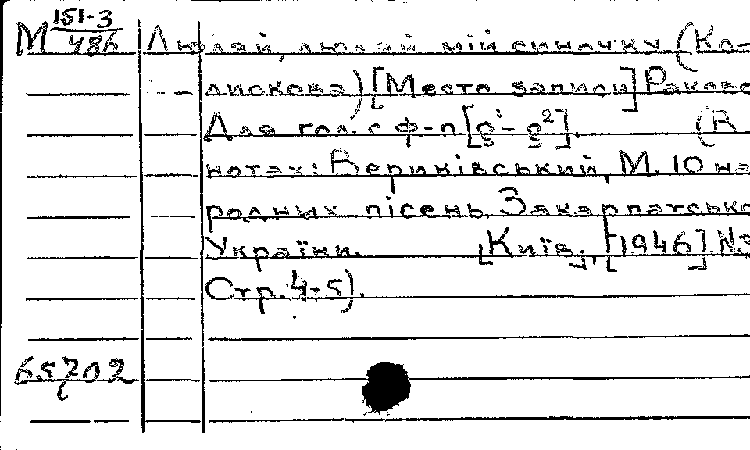 М 151-3/486 Люляй, люляй мій синочку (Ко-
лискова) [Место записи] Рахово
Для гол. с ф-п [e¹-e²]. (В
нотах: Вериківський, М. 10 на-
родных пісень Закарпатсько
України. [Київ], [1946] №3
Стр. 4-5).
65702